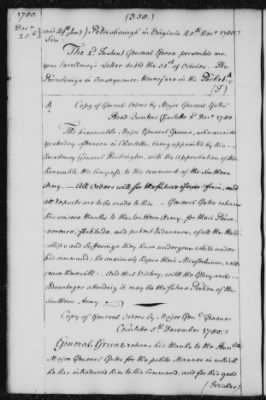 1780. (330.)
Decr 25th and 29th Inst) Petersborough in Virginia 25th Decr 1780.
Sir
The 2d Instant General Green presented me
your Excellency's Letter dated the 31st of October. The
Proceedings in Consequence thereof are in the Packet A.
(1)
A Copy of General Orders by Major General Gates
Head Quarters Charlotte 4th Decr 1780
The honorable Major General Greene, who arrived
yesterday afternoon in Charlotte, being appointed by his
Excellency General Washington, with the approbation of the
honorable the Congress, to the command of the Southern
Army, — All Orders will for the future Issue from him, and
all reports are to be made to him — General Gates returns
his sincere thanks to the Southern Army, for their Perse-
verance, fortitude, and patient Endurance, of all the Hard-
ships and Sufferings they have undergone while under
his command. He anxiously hopes their Misfortunes, will
cease therewith — And that Victory, with the Glory and
Advantages attending it, may be the future Portion of the
Southern Army
Copy of General Orders by Major Genl Greene
Charlotte 5th December 1780.
General Greene returns his thanks to the Honble
Major General Gates for the polite Manner in which
he has introduced him to this Command, and for his good
(Wishes)